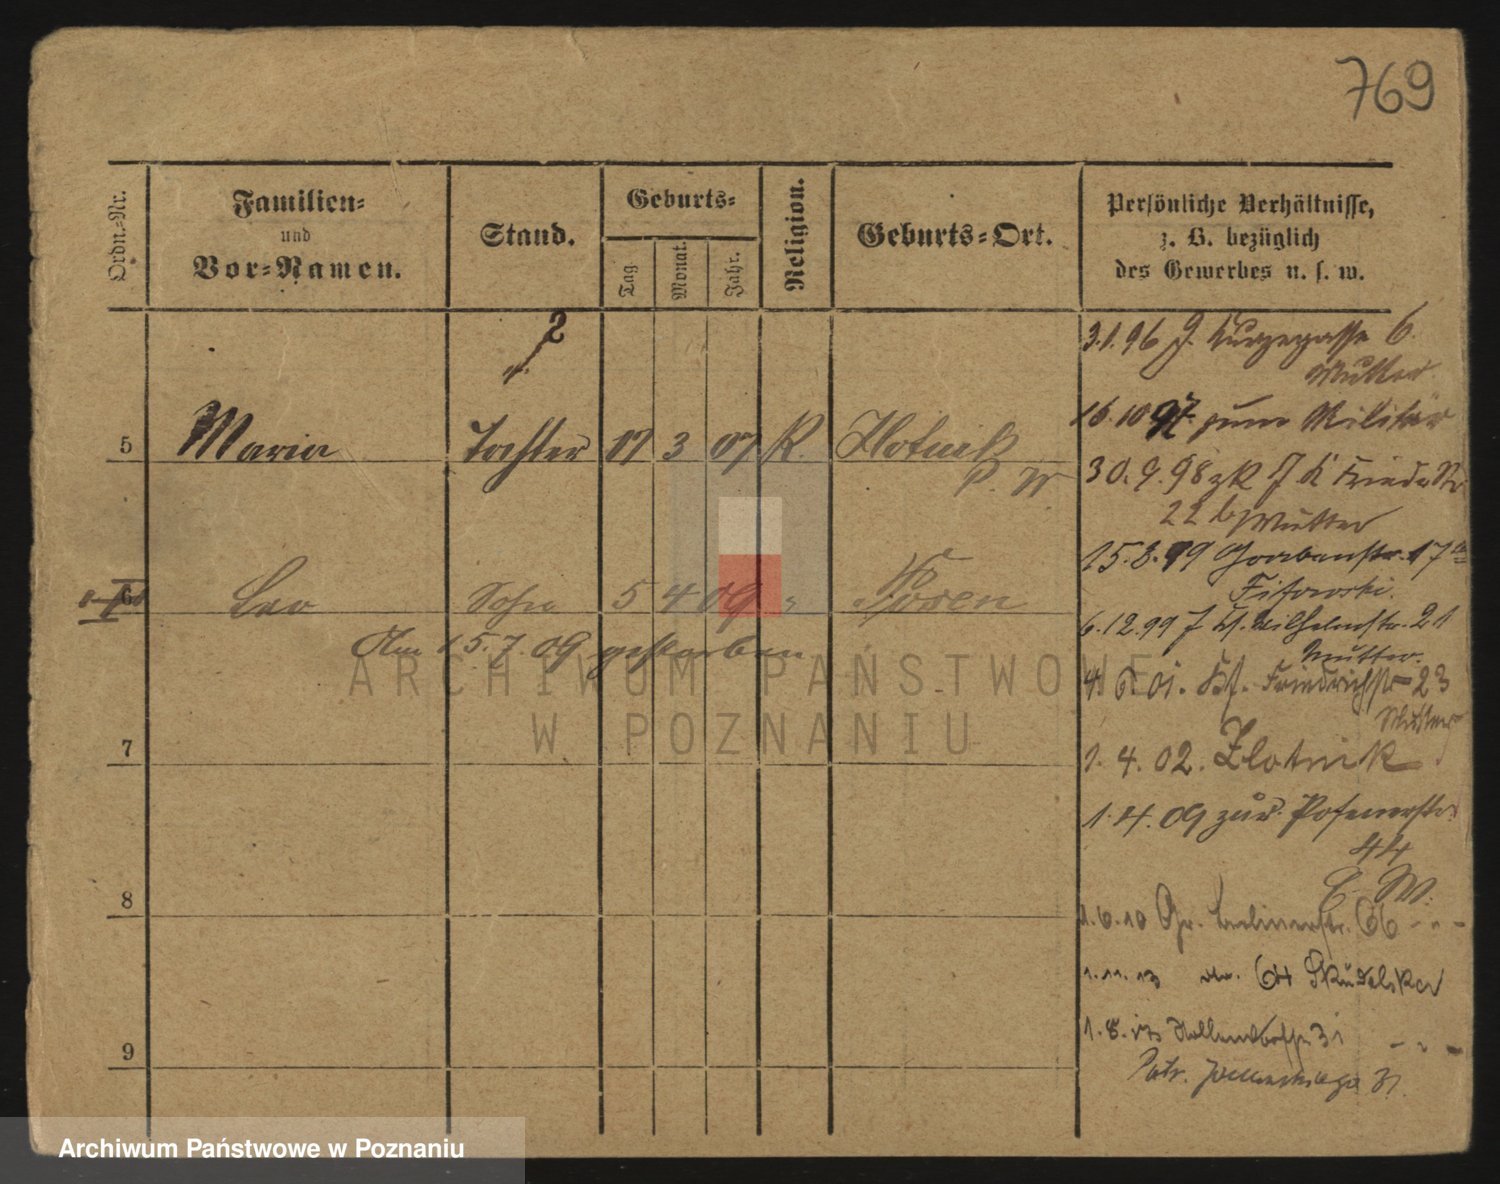 769
Ordn.-Nr.
Familien-
und
Vor-Namen.
Stand.
Geburts-
Tag
Monat.
Jahr.
Religion.
Geburts-Ort.
Persönliche Verhältnisse,
z. B. bezüglich
des Gewerbes u. s. w.
2
3.1.96 J. 6.
Mutter
16.10 97 zum Militär
5 Maria Tochter 17 3 07 K. Zlotnik
P. W
30.9.98 zk J K
22 b Mutter
15.8.99 17
6 Leo Sohn 5 4 09 " Posen
6.12.99 J K. Wilhelmstr. 21
Mutter.
Am 15.7.09 gestorben
4.6.01. Friedrichstr 23
Mutter
7
1.4.02. Zlotnik
1.4.09 zur. Posenerstr.
44
8
E. W.
1.6.10 Gr. Berlinerstr. 66 - " -
1.11.13 64 Skudelska
9
1.8. 31 - " -
Patr. 31.
ARCHIWUM PAŃSTWOWE
W POZNANIU
Archiwum Państwowe w Poznaniu